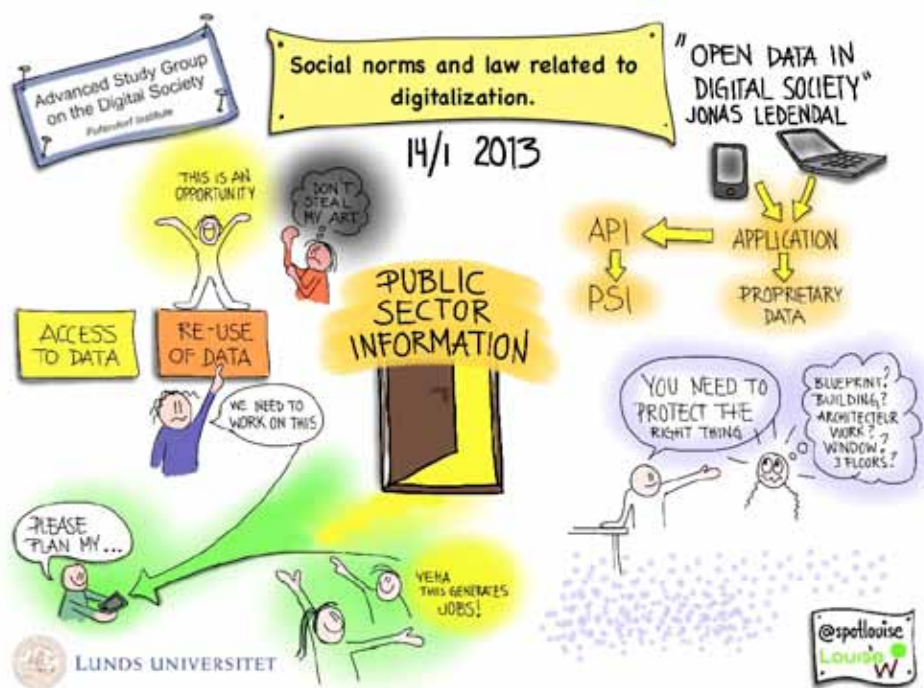 Advanced Study Group
on the Digital Society
Pufendorf Institute
Social norms and law related to
digitalization.
14/1 2013
"OPEN DATA IN
DIGITAL SOCIETY"
JONAS LEDENDAL
THIS IS AN
OPPORTUNITY
DON'T
STEAL
MY ART
API
APPLICATION
PSI
PROPRIETARY
DATA
PUBLIC
SECTOR
INFORMATION
ACCESS
TO DATA
RE-USE
OF DATA
WE NEED TO
WORK ON THIS
YOU NEED TO
PROTECT THE
RIGHT THING
BLUEPRINT?
BUILDING?
ARCHITECTEUR
WORK?
WINDOW?
3 FLOORS?
PLEASE
PLAN MY...
YEHA
THIS GENERATES
JOBS!
LUNDS UNIVERSITET
@spotlouise
Louise
W